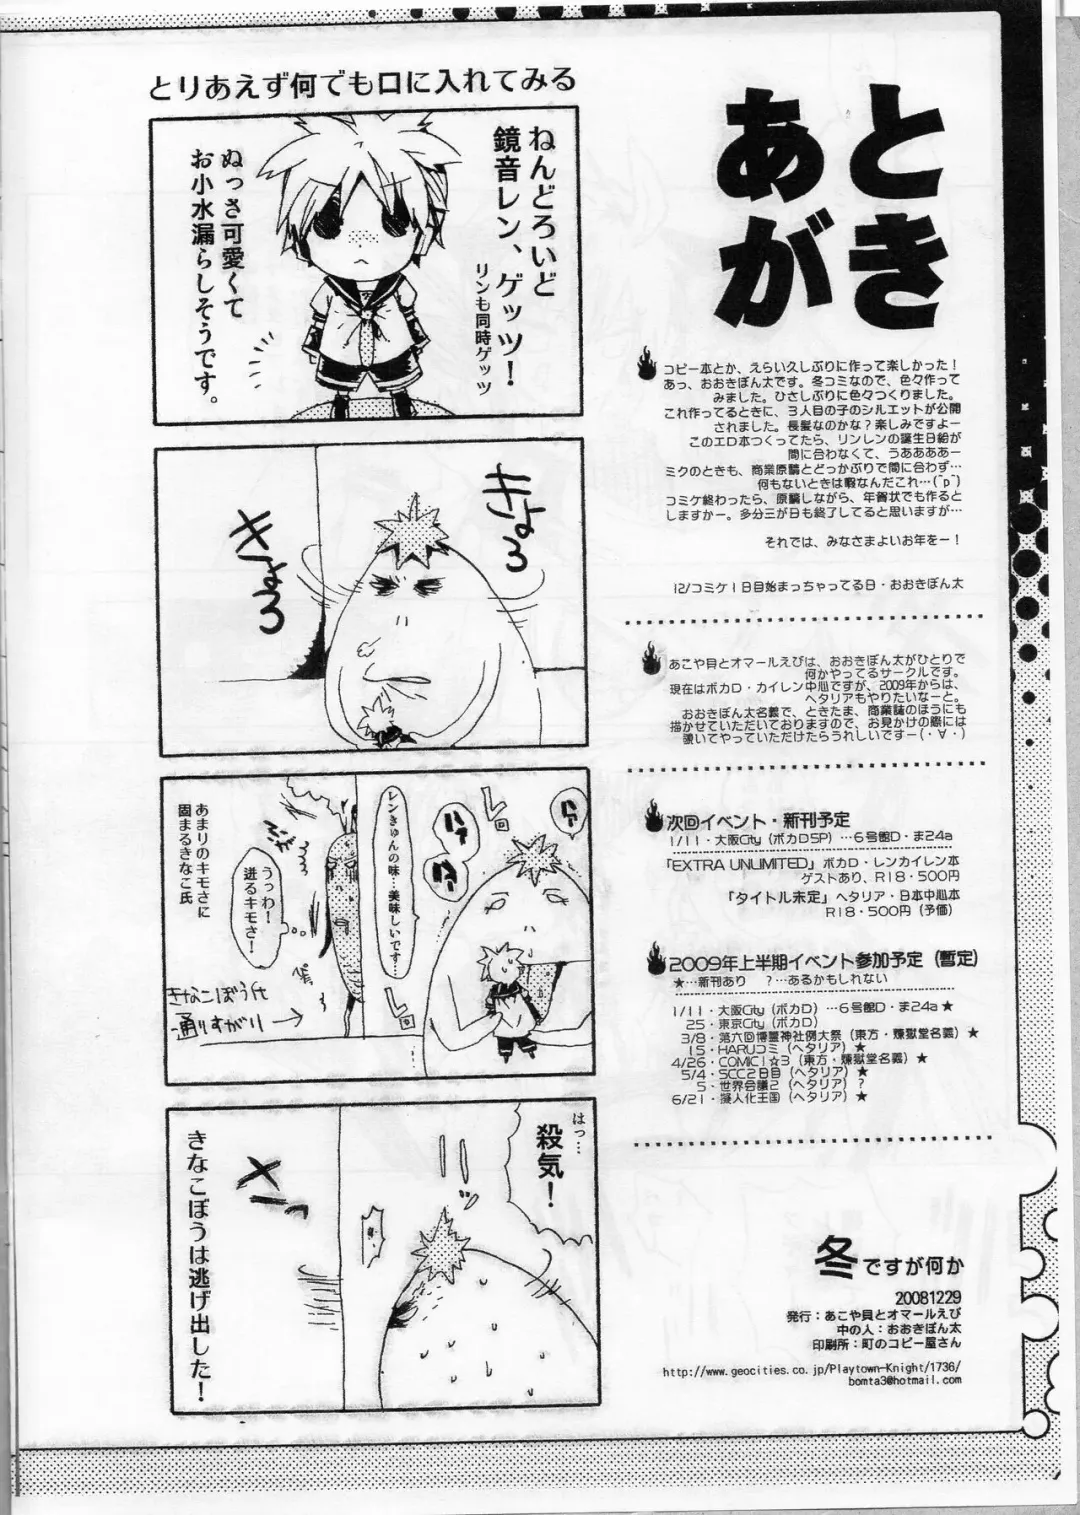 あとがき
コピー本とか、えらい久しぶりに作って楽しかった！
あっ、おおきぼん太です。冬コミなので、色々作って
みました。ひさしぶりに色々つくりました。
これ作ってるときに、３人目の子のシルエットが公開
されました。長髪なのかな？楽しみですよー
このエロ本つくってたら、リンレンの誕生日絵が
間に合わなくて、うああああー
ミクのときも、商業原稿とどっかぶりで間に合わず…
何もないときは暇なんだこれ…(¯p¯)
コミケ終わったら、原稿しながら、年賀状でも作ると
しますかー。多分三が日も終了してると思いますが…
それでは、みなさまよいお年をー！
12/コミケ１日目始まっちゃってる日・おおきぼん太
あこや貝とオマールえびは、おおきぼん太がひとりで
何かやってるサークルです。
現在はボカロ・カイレン中心ですが、2009年からは、
ヘタリアもやりたいなーと。
おおきぼん太名義で、ときたま、商業誌のほうにも
描かせていただいておりますので、お見かけの際には
覗いてやっていただけたらうれしいですー(・∀・)
次回イベント・新刊予定
1/11・大阪City（ボカロSP）…6号館D・ま24a
「EXTRA UNLIMITED」ボカロ・レンカイレン本
ゲストあり、R18・500円
「タイトル未定」ヘタリア・日本中心本
R18・500円（予価）
2009年上半期イベント参加予定（暫定）
★…新刊あり　？…あるかもしれない
1/11・大阪City（ボカロ）…6号館D・ま24a★
25・東京City（ボカロ）
3/8・第六回博麗神社例大祭（東方・煉獄堂名義）★
15・HARUコミ（ヘタリア）★
4/26・COMIC1☆3（東方・煉獄堂名義）★
5/4・SCC2日目（ヘタリア）★
5・世界会議2（ヘタリア）？
6/21・擬人化王国（ヘタリア）★
冬ですが何か
20081229
発行：あこや貝とオマールえび
中の人：おおきぼん太
印刷所：町のコピー屋さん
http://www.geocities.co.jp/Playtown-Knight/1736/
bomta3@hotmail.com
とりあえず何でも口に入れてみる
ねんどろいど
鏡音レン、ゲッツ！
リンも同時ゲッツ
ぬっさ可愛くて
お小水漏らしそうです。
きょろ
きょろ
ハァ
ハァ
ハァ
レロ
レンきゅんの味…美味しいです…
レロ
うっわ！
迸るキモさ！
あまりのキモさに
固まるきなこ氏
きなこぼうが
通りすがり→
はっ…
殺気！
きなこぼうは逃げ出した！